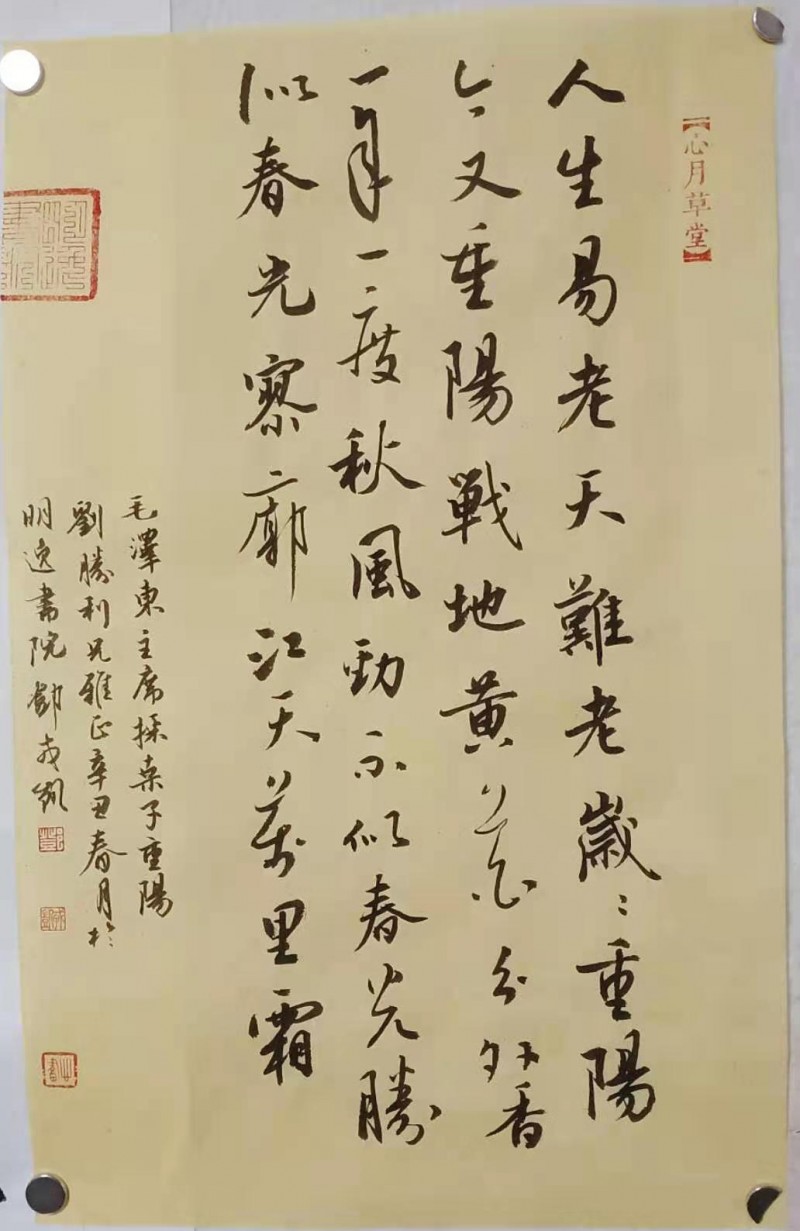 【心月草堂】
人生易老天難老歲〻重陽
今又重陽戰地黄花分外香
一年一度秋風勁不似春光勝
似春光寥廓江天萬里霜
毛澤東主席採桑子重陽
劉勝利兄雅正辛丑春月於
明逸書院鄧成龍